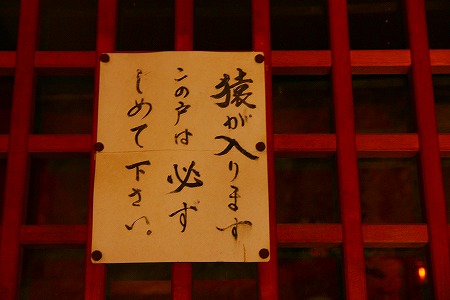 猿が入ります
この戸は必ず
しめて下さい。